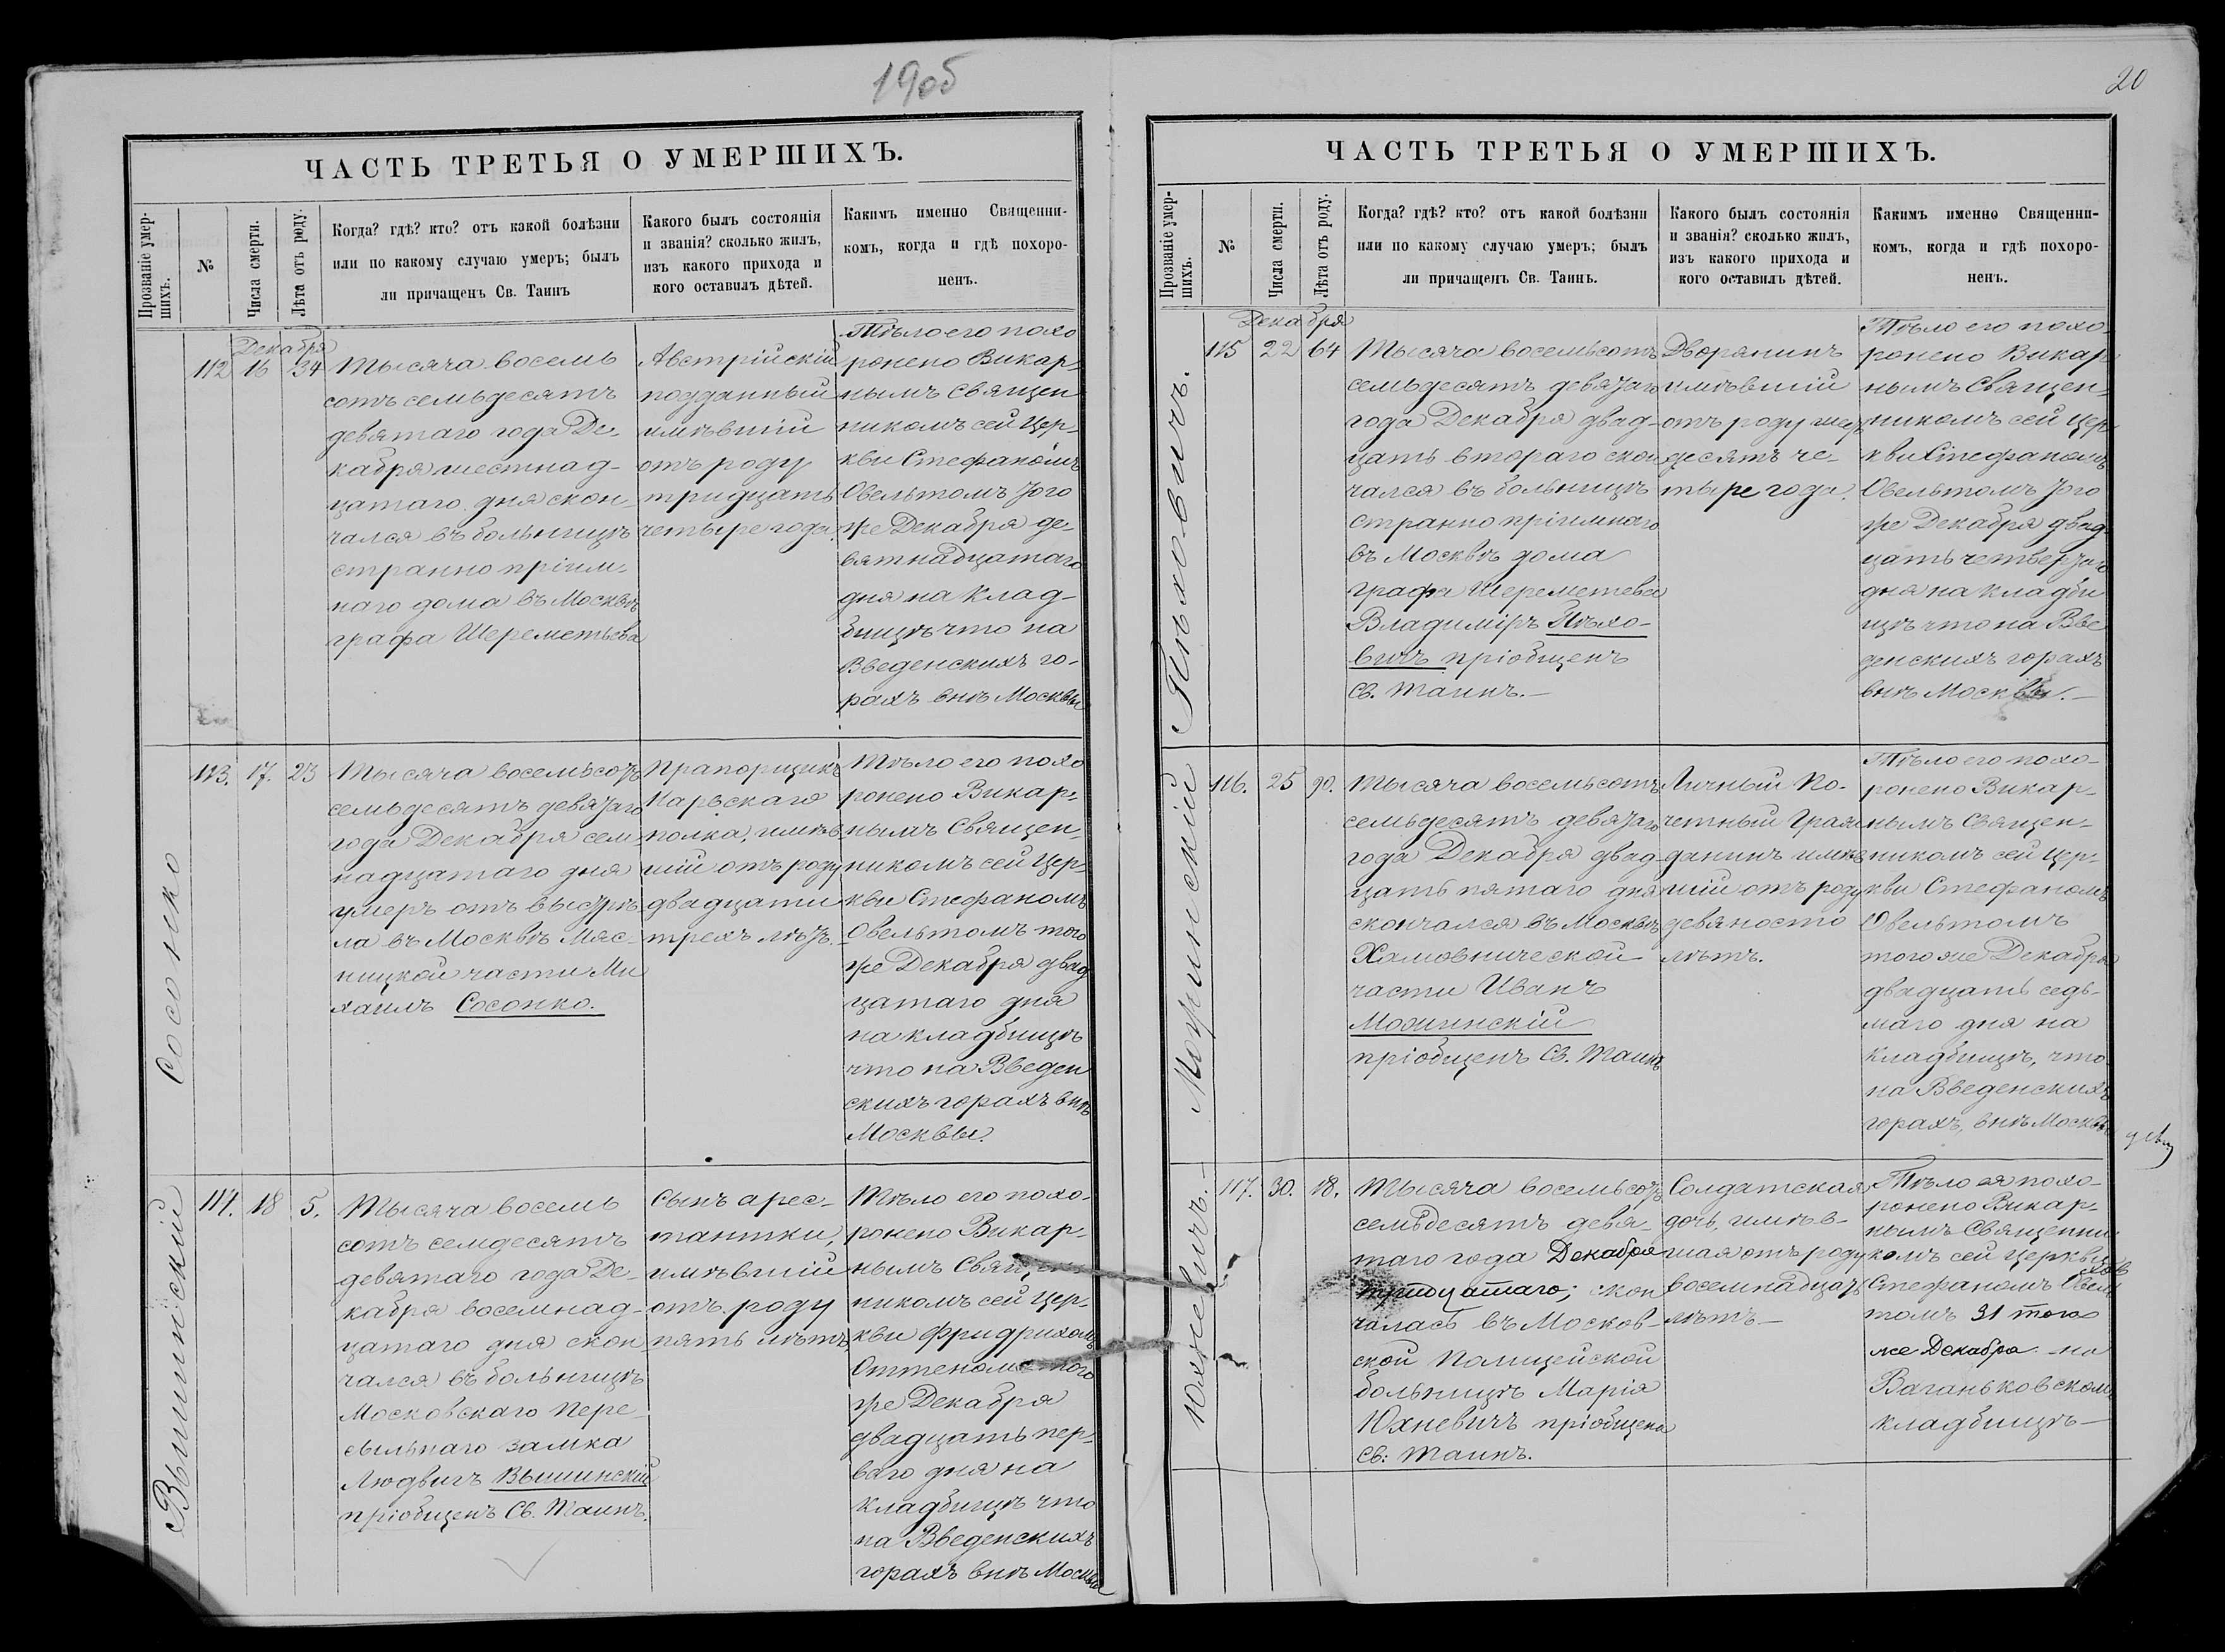 1905
20
ЧАСТЬ ТРЕТЬЯ О УМЕРШИХЪ.
Прозваніе умер-
шихъ.
№
Числа смерти.
Лѣта отъ роду.
Когда? гдѣ? кто? отъ какой болѣзни
или по какому случаю умеръ; былъ
ли причащенъ Св. Таинъ
Какого былъ состоянія
и званія? сколько жилъ,
изъ какого прихода и
кого оставилъ дѣтей.
Какимъ именно Священни-
комъ, когда и гдѣ похоро-
ненъ.
Декабря
112 16 34
Тысяча восемь
сотъ семьдесятъ
девятаго года Де-
кабря шестнад-
цатаго дня скон-
чался въ больницѣ
странно пріим-
наго дома въ Москвѣ
графа Шереметьева
Австрійскій
подданный
имѣвшій
отъ роду
тридцать
четыре года
Тѣло его похо
ронено Викар-
нымъ Священ
никомъ сей Цер-
кви Стефаномъ
Овельтомъ того
же Декабря де-
вятнадцатаго
дня на клад-
бищѣ что на
Введенскихъ го-
рахъ внѣ Москвы
Сосонко
113. 17. 23
Тысяча восемьсотъ
семьдесятъ девятаго
года Декабря сем-
надцатаго дня
умеръ отъ выстрѣ-
ла въ Москвѣ Мяс-
ницкой части Ми
хаилъ Сосонко.
Прапорщикъ
Карьскаго
полка, имѣв
шій отъ роду
двадцати
трехъ лѣтъ.
Тѣло его похо
ронено Викар-
нымъ Священ-
никомъ сей Цер-
кви Стефаномъ
Овельтомъ того
же Декабря двад
цатаго дня
на кладбищѣ
что на Введен
скихъ горахъ внѣ
Москвы.
Вышинскій
114. 18 5.
Тысяча восемь
сотъ семдесятъ
девятаго года Де-
кабря восемнад-
цатаго дня скон
чался въ больницѣ
Московскаго Пере-
сыльнаго замка
Людвигъ Вышинскій
пріобщенъ Св. Таинъ.
Сынъ арес-
тантки,
имѣвшій
отъ роду
пять лѣтъ
Тѣло его похо-
ронено Викар-
нымъ Священ-
никомъ сей Цер-
кви Фридрихомъ
Оттеномъ того
же Декабря
двадцать пер-
ваго дня на
кладбищѣ что
на Введенскихъ
горахъ внѣ Москвы
ЧАСТЬ ТРЕТЬЯ О УМЕРШИХЪ.
Прозваніе умер-
шихъ.
№
Числа смерти.
Лѣта отъ роду.
Когда? гдѣ? кто? отъ какой болѣзни
или по какому случаю умеръ; былъ
ли причащенъ Св. Таинъ.
Какого былъ состоянія
и званія? сколько жилъ,
изъ какого прихода и
кого оставилъ дѣтей.
Какимъ именно Священни-
комъ, когда и гдѣ похоро-
ненъ.
Декабря
Пѣховичъ.
115 22 64
Тысяча восемьсотъ
семьдесятъ девятаго
года Декабря двад-
цать втораго скон
чался въ больницѣ
странно пріимнаго
въ Москвѣ дома
графа Шереметева
Владиміръ Пѣхо-
вичъ пріобщенъ
Св. Таинъ.—
Дворянинъ
имѣвшій
отъ роду шес
десятъ че-
тыре года.
Тѣло его похо-
ронено Викар
нымъ Священ-
никомъ сей Цер-
кви Стефаномъ
Овельтомъ того
же Декабря двад
цать четвертаго
дня на кладби
щѣ что на Вве
денскихъ горахъ
внѣ Москвы.—
116. 25 90.
Тысяча восемьсотъ
семьдесятъ девятаго
года Декабря двад-
цать пятаго дня
скончался въ Москвѣ
Хамовнической
части Иванъ
пріобщенъ Св. Таинъ
Личный По-
четный Граж
данинъ имѣв
шій отъ роду
девяносто
лѣтъ.
Тѣло его похо-
ронено Викар-
нымъ Священ-
никомъ сей Цер-
кви Стефаномъ
Овельтомъ
того же Декабря
двадцать седь-
маго дня на
кладбищѣ, что
на Введенскихъ
горахъ, внѣ Москвы
Юхневичъ.—
117. 30. 18.
Тысяча восемьсотъ
семьдесятъ девя-
таго года Декабря
тридцатаго; скон
чалась въ Москов-
ской Полицейской
больницѣ Марія
Юхневичъ пріобщена
Св: Таинъ.
Солдатская
дочь, имѣв-
шая отъ роду
восемнадцать
лѣтъ—
Тѣло ея похо-
ронено Викар-
нымъ Священни
комъ сей Церкви
Стефаномъ Овель
томъ 31 того
же Декабря на
Ваганьковскомъ
кладбищѣ—